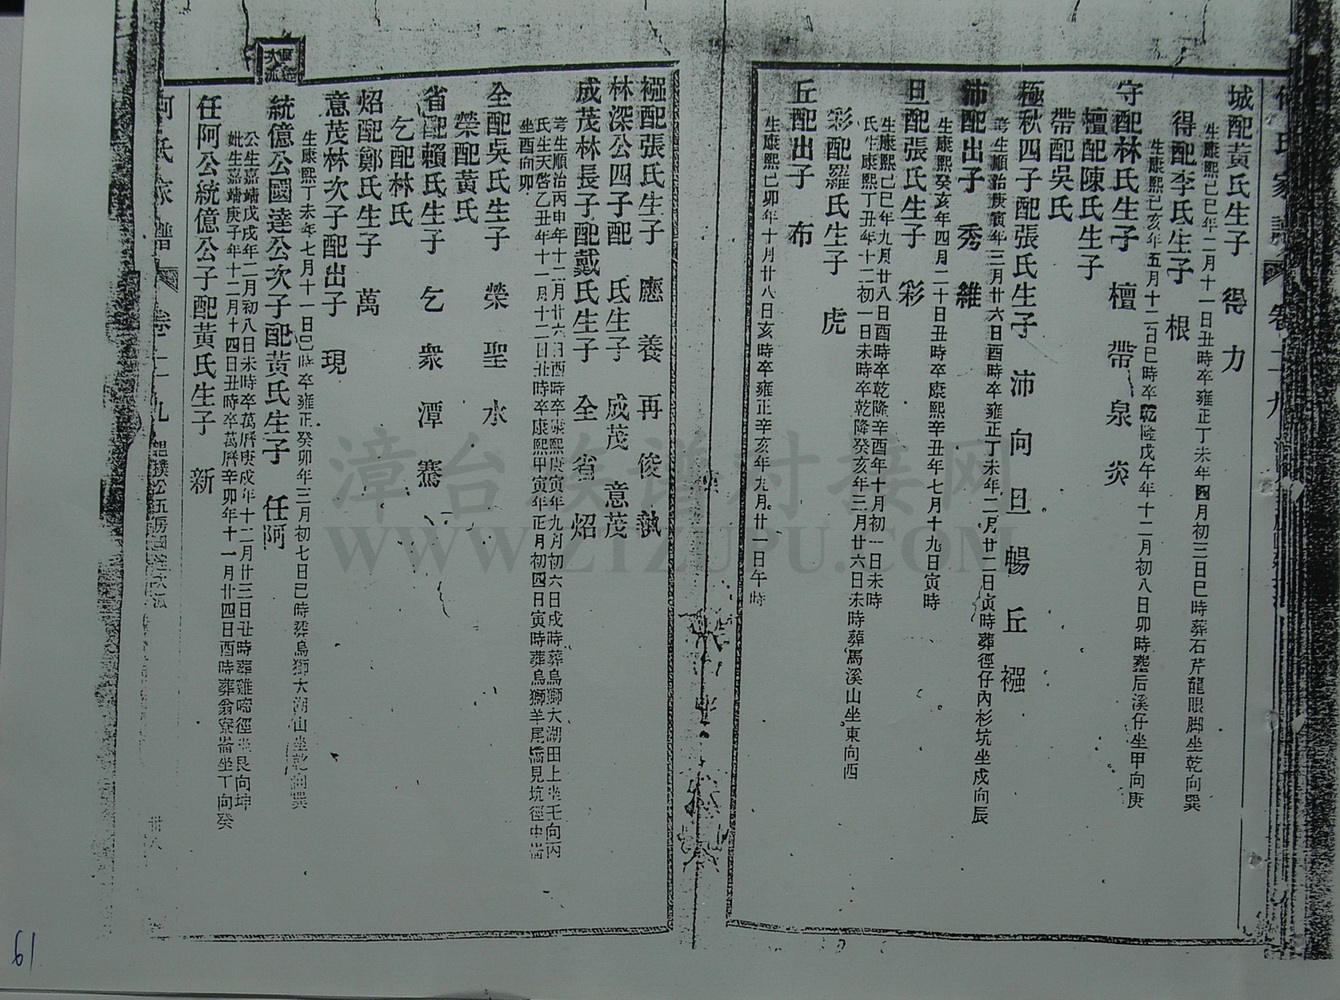 何氏家譜 卷十九
城配黃氏生子 得 力
生康熙己巳年二月十一日丑時卒雍正丁未年四月初三日巳時葬石芹龍眼脚坐乾向巽
得配李氏生子 根
生康熙己亥年五月十二日巳時卒乾隆戊午年十二月初八日卯時葬后溪仔坐甲向庚
守配林氏生子 檀 帶 泉 炎
檀配陳氏生子
帶配吳氏
極秋四子配張氏生子 沛 向 旦 暢 丘 襁
考生順治庚寅年三月廿六日酉時卒雍正丁未年二月廿二日寅時葬徑仔內杉坑坐戌向辰
沛配出子 秀 維
生康熙癸亥年四月二十日丑時卒康熙辛丑年七月十九日寅時
旦配張氏生子 彩
生康熙己巳年九月廿八日酉時卒乾隆辛酉年十月初一日未時
氏生康熙丁丑年十二初一日未時卒乾隆癸亥年三月廿六日未時葬馬溪山坐東向西
彩配羅氏生子 虎
丘配出子 布
生康熙己卯年十月廿八日亥時卒雍正辛亥年九月廿一日午時
襁配張氏生子 應 養 再 俊 執
林深公四子配 氏生子 成茂 意茂
成茂林長子配戴氏生子 全 省 炤
考生順治丙申年十二月廿六日酉時卒康熙庚寅年九月初六日戌時葬烏獅大湖田上坐壬向丙
氏生天啓乙丑年十一月十二日丑時卒康熙甲寅年正月初四日寅時葬烏獅羊尾橋見坑徑中崙
坐酉向卯
全配吳氏生子 榮 聖 水
榮配黃氏
省配賴氏生子 乞 衆 潭 騫
乞配林氏
炤配鄭氏生子 萬
意茂林次子配出子 現
生康熙丁未年七月十一日巳時卒雍正癸卯年三月初七日巳時葬烏獅大湖山坐乾向巽
統億公國達公次子配黃氏生子 任阿
公生嘉靖戊戌年二月初八日未時卒萬曆庚戌年十二月廿三日丑時葬雞啼徑坐艮向坤
妣生嘉靖庚子年十二月十四日丑時卒萬曆辛卯年十一月廿四日酉時葬翁寮崙坐丁向癸
任阿公統億公子配黃氏生子 新
何氏家譜 卷十九
漳台族谱对接网
WWW.ZTZUPU.COM
61